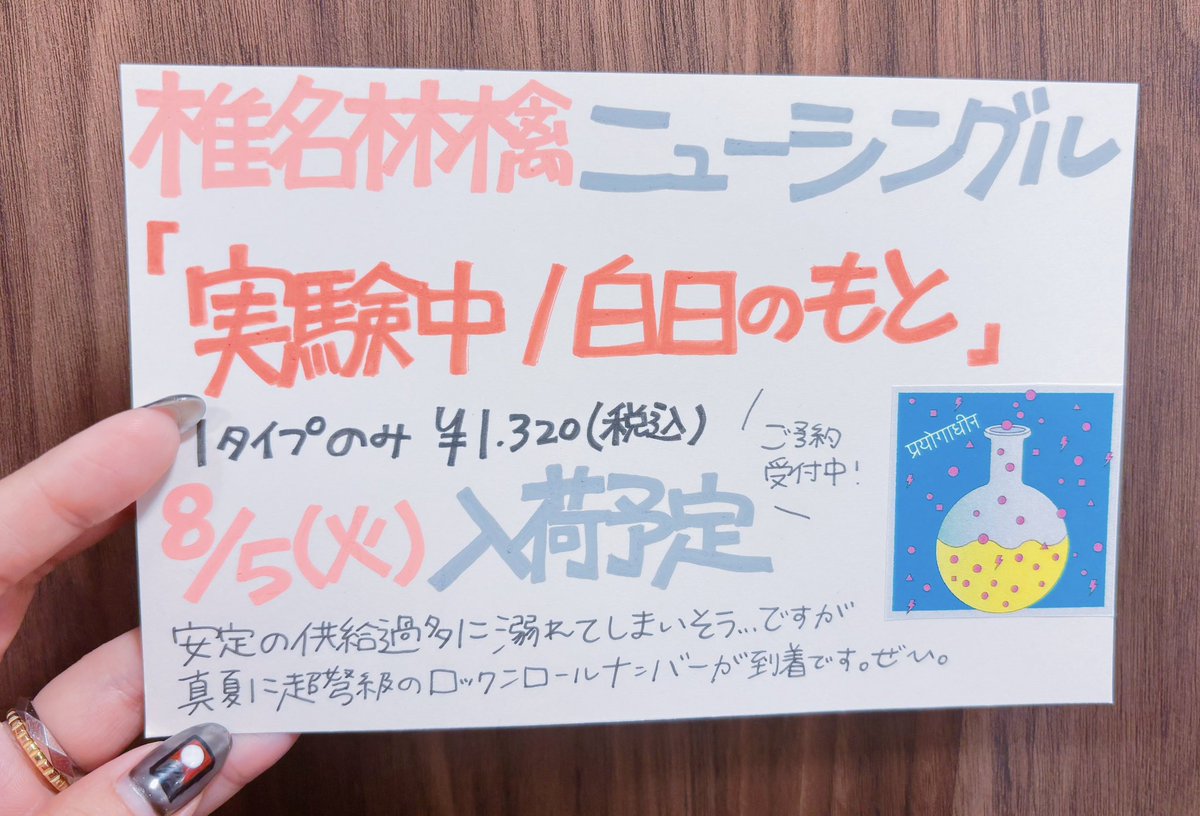 椎名林檎ニューシングル
「実験中/白日のもと」
1タイプのみ ¥1.320(税込)
ご予約
受付中!
8/5(火)入荷予定
प्रयोगाधीन
安定の供給過多に溺れてしまいそう...ですが
真夏に超弩級のロックンロールナンバーが到着です。ぜひ。